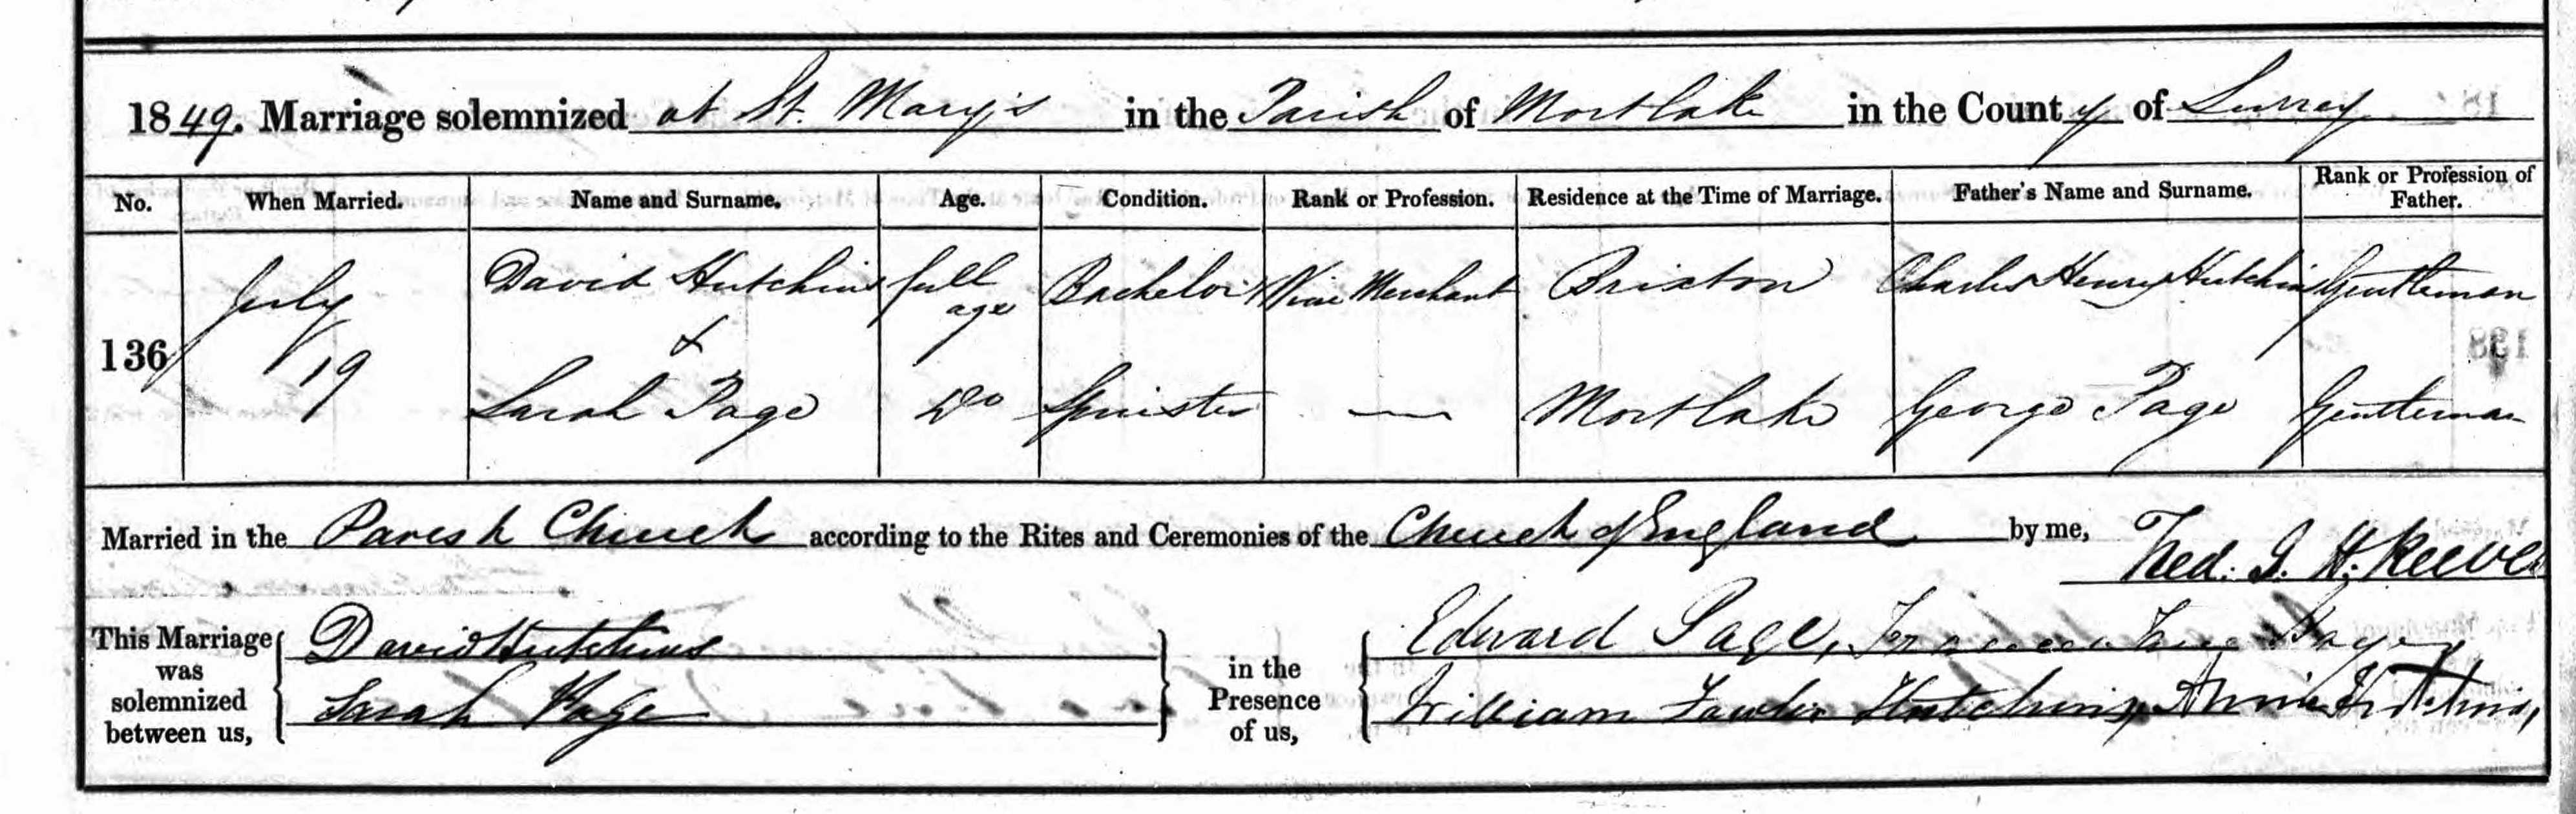 1849. Marriage solemnized at St. Mary's in the Parish of Mortlake in the County of Surrey
No. When Married. Name and Surname. Age. Condition. Rank or Profession. Residence at the Time of Marriage. Father's Name and Surname. Rank or Profession of Father.
136 July 19 David Hutchins full age Bachelor Wine Merchant Brixton Charles Henry Hutchins Gentleman
&
Sarah Page Do Spinster — Mortlake George Page Gentleman
Married in the Parish Church according to the Rites and Ceremonies of the Church of England by me, Fred. J. H. Reeves
This Marriage was solemnized between us, David Hutchins Sarah Page
in the Presence of us, Edward Page, Jane Page
William Hutchins, Hutchins,